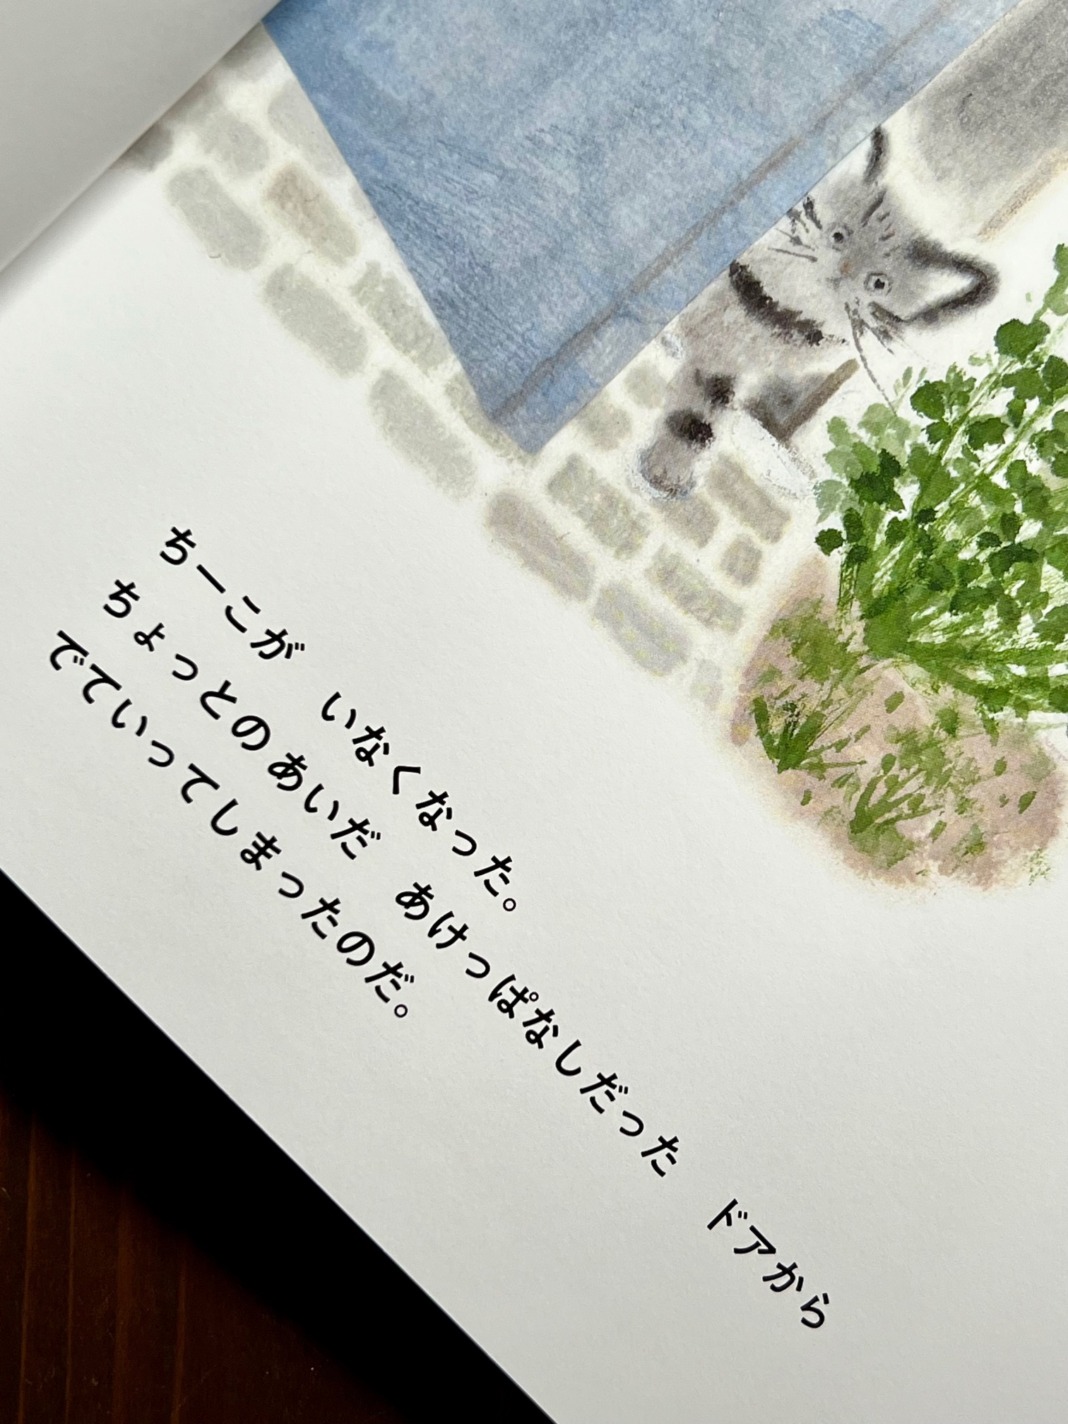 ちーこが　いなくなった。
ちょっとのあいだ　あけっぱなしだった　ドアから
でていってしまったのだ。